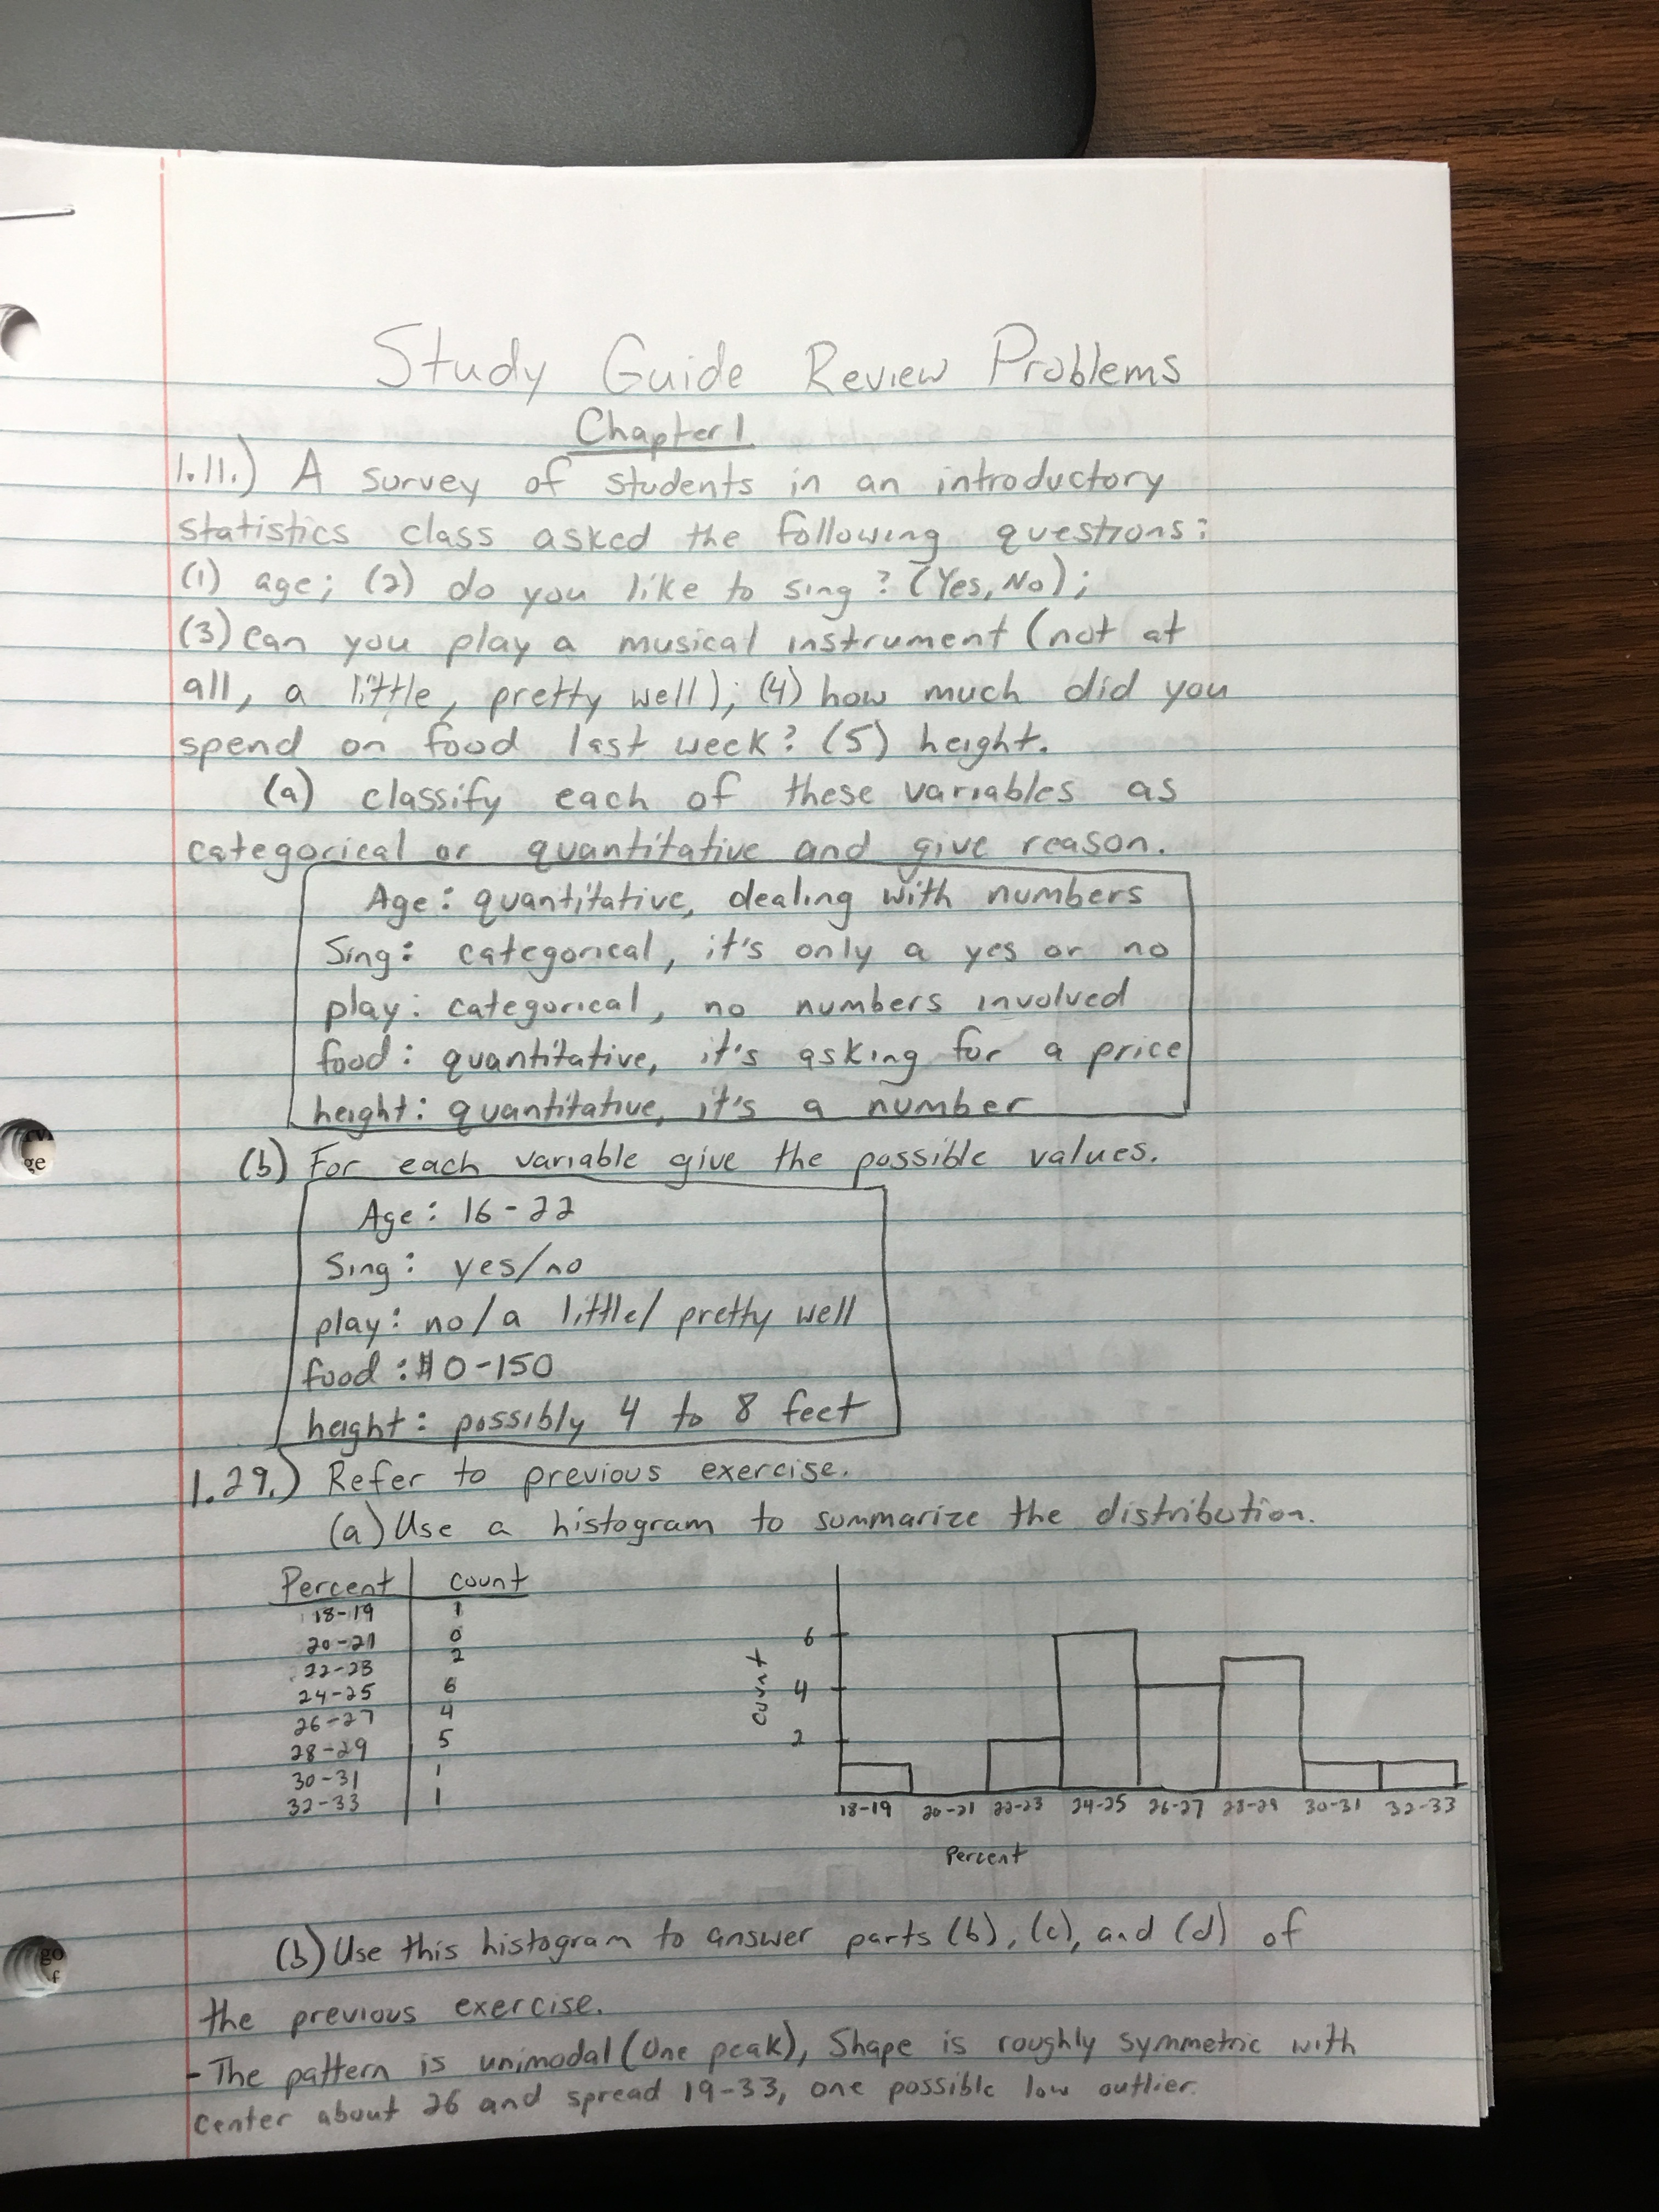 Study Guide Review Problems
Chapter 1
1.11.) A survey of students in an introductory
statistics class asked the following questions:
(1) age; (2) do you like to sing? (Yes, No);
(3) can you play a musical instrument (not at
all, a little, pretty well); (4) how much did you
spend on food last week? (5) height.
(a) classify each of these variables as
categorical or quantitative and give reason.
Age: quantitative, dealing with numbers
Sing: categorical, it's only a yes or no
play: categorical, no numbers involved
food: quantitative, it's asking for a price
height: quantitative, it's a number
(b) For each variable give the possible values.
Age: 16-22
Sing: yes/no
play: no/a little/ pretty well
food: $0-150
height: possibly 4 to 8 feet
1.29.) Refer to previous exercise.
(a) Use a histogram to summarize the distribution.
Percent count
18-19 1
20-21 0
22-23 2
24-25 6
26-27 4
28-29 5
30-31 1
32-33 1
count
6
4
2
18-19 20-21 22-23 24-25 26-27 28-29 30-31 32-33
Percent
(b) Use this histogram to answer parts (b), (c), and (d) of
the previous exercise.
- The pattern is unimodal (one peak), Shape is roughly symmetric with
center about 26 and spread 19-33, one possible low outlier.
ge
go
f